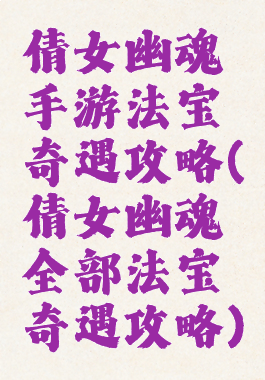 倩女幽魂
手游法宝
奇遇攻略(
倩女幽魂
全部法宝
奇遇攻略)